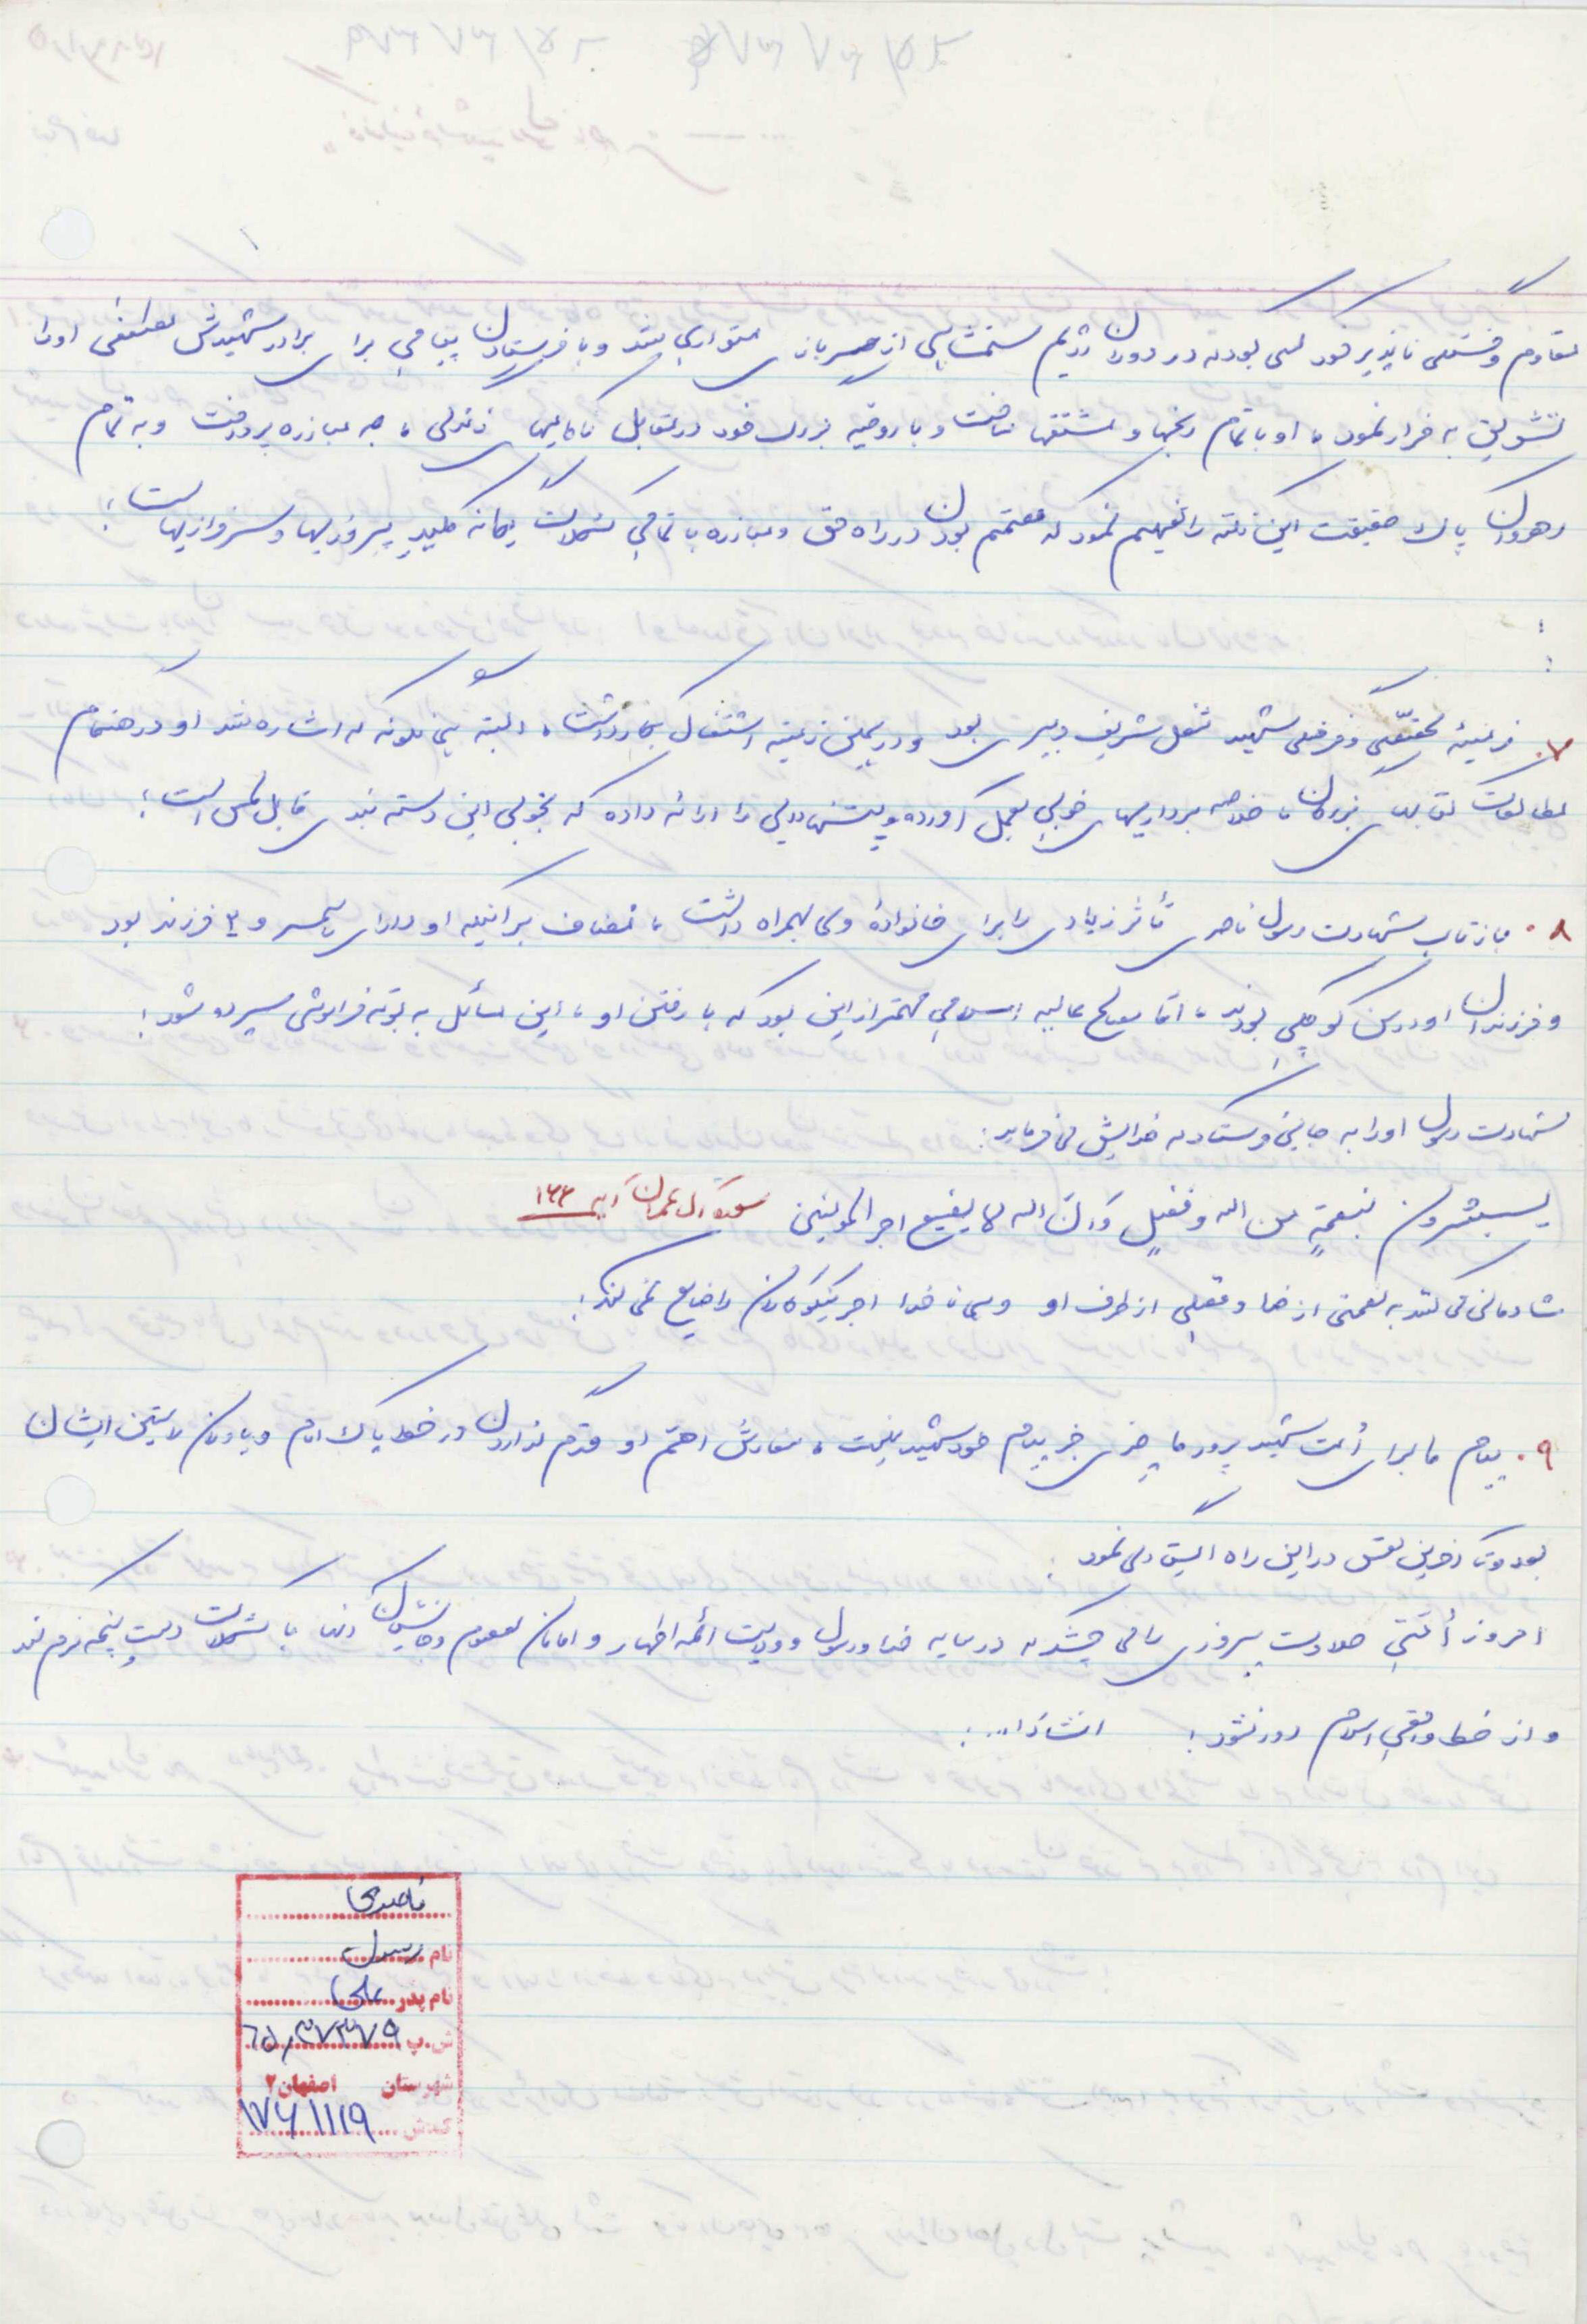 مقاوم و خستگی ناپذیر خود کسی بود که در دوران رژیم ستمشاهی از سربازی متواری شد و با فرستادن پیامی برای برادر شهیدش مصطفی او را
تشویق به فرار نمود، او با تمام رنجها و مشقتها ساخت و با روحیه بزرگ خود در مقابل ناکامیهای زندگی، به مبارزه پرداخت و به تمام
رهروان پاک حقیقت این نکته را تفهیم نمود که مصمم بودن در راه حق و مبارزه با تمامی مشکلات یگانه کلید پیروزیها و سرفرازیهاست؛
:
:
۷. زمینهٔ تحقیقی و فرهنگی شهید شغل شریف دبیری بود و در همین زمینه اشتغال بکار داشت، البته همانگونه که اشاره شد او در هنگام
مطالعات کتابهای بزرگان، خلاصه برداریهای خوبی بعمل آورده و پیشنهادهایی را ارائه داده که بخوبی این دسته بندی قابل لمس است؛
۸. بازتاب شهادت رسول ناصری تأثر زیادی را برای خانوادهٔ وی بهمراه داشت، مضاف بر اینکه او دارای همسر و ۳ فرزند بود
و فرزندان او در سن کوچکی بودند، اما مصالح عالیه اسلامی مهمتر از این بود که با رفتن او، این مسائل به بوته فراموشی سپرده شود؛
شهادت رسول او را به جایی فرستاد که خدایش می فرماید:
یستبشرون بنعمةٍ من الله و فضلٍ وَ اَنَّ الله لا یضیع اجر المؤمنین سوره آل عمران آیه
شادمانی می کنند به نعمتی از خدا و فضلی از طرف او و همانا خدا اجر نیکوکاران را ضایع نمی کند؛
۹. پیام ما برای اُمت شهید پرور ما چیزی جز پیام خود شهید نیست، سفارش اهم او قدم گذاردن در خط پاک امام و یاران راستین ایشان
بود و تا آخرین نفس در این راه ایستادگی نمود.
امروز اُمتی حلاوت پیروزی را می چشد که در سایه خدا و رسول و ولایت ائمه اطهار و امامان معصوم و جانشینان آنها با مشکلات دست و پنجه نرم کند
و از خط واقعی اسلام دور نشود؛ انشاءا...؛
ناصری
نام رسول
نام پدر علی
ش.پ ۶۵٫۳۷۳۷۹
شهرستان اصفهان ۲
کدش ۱۷۶۱۱۱۹